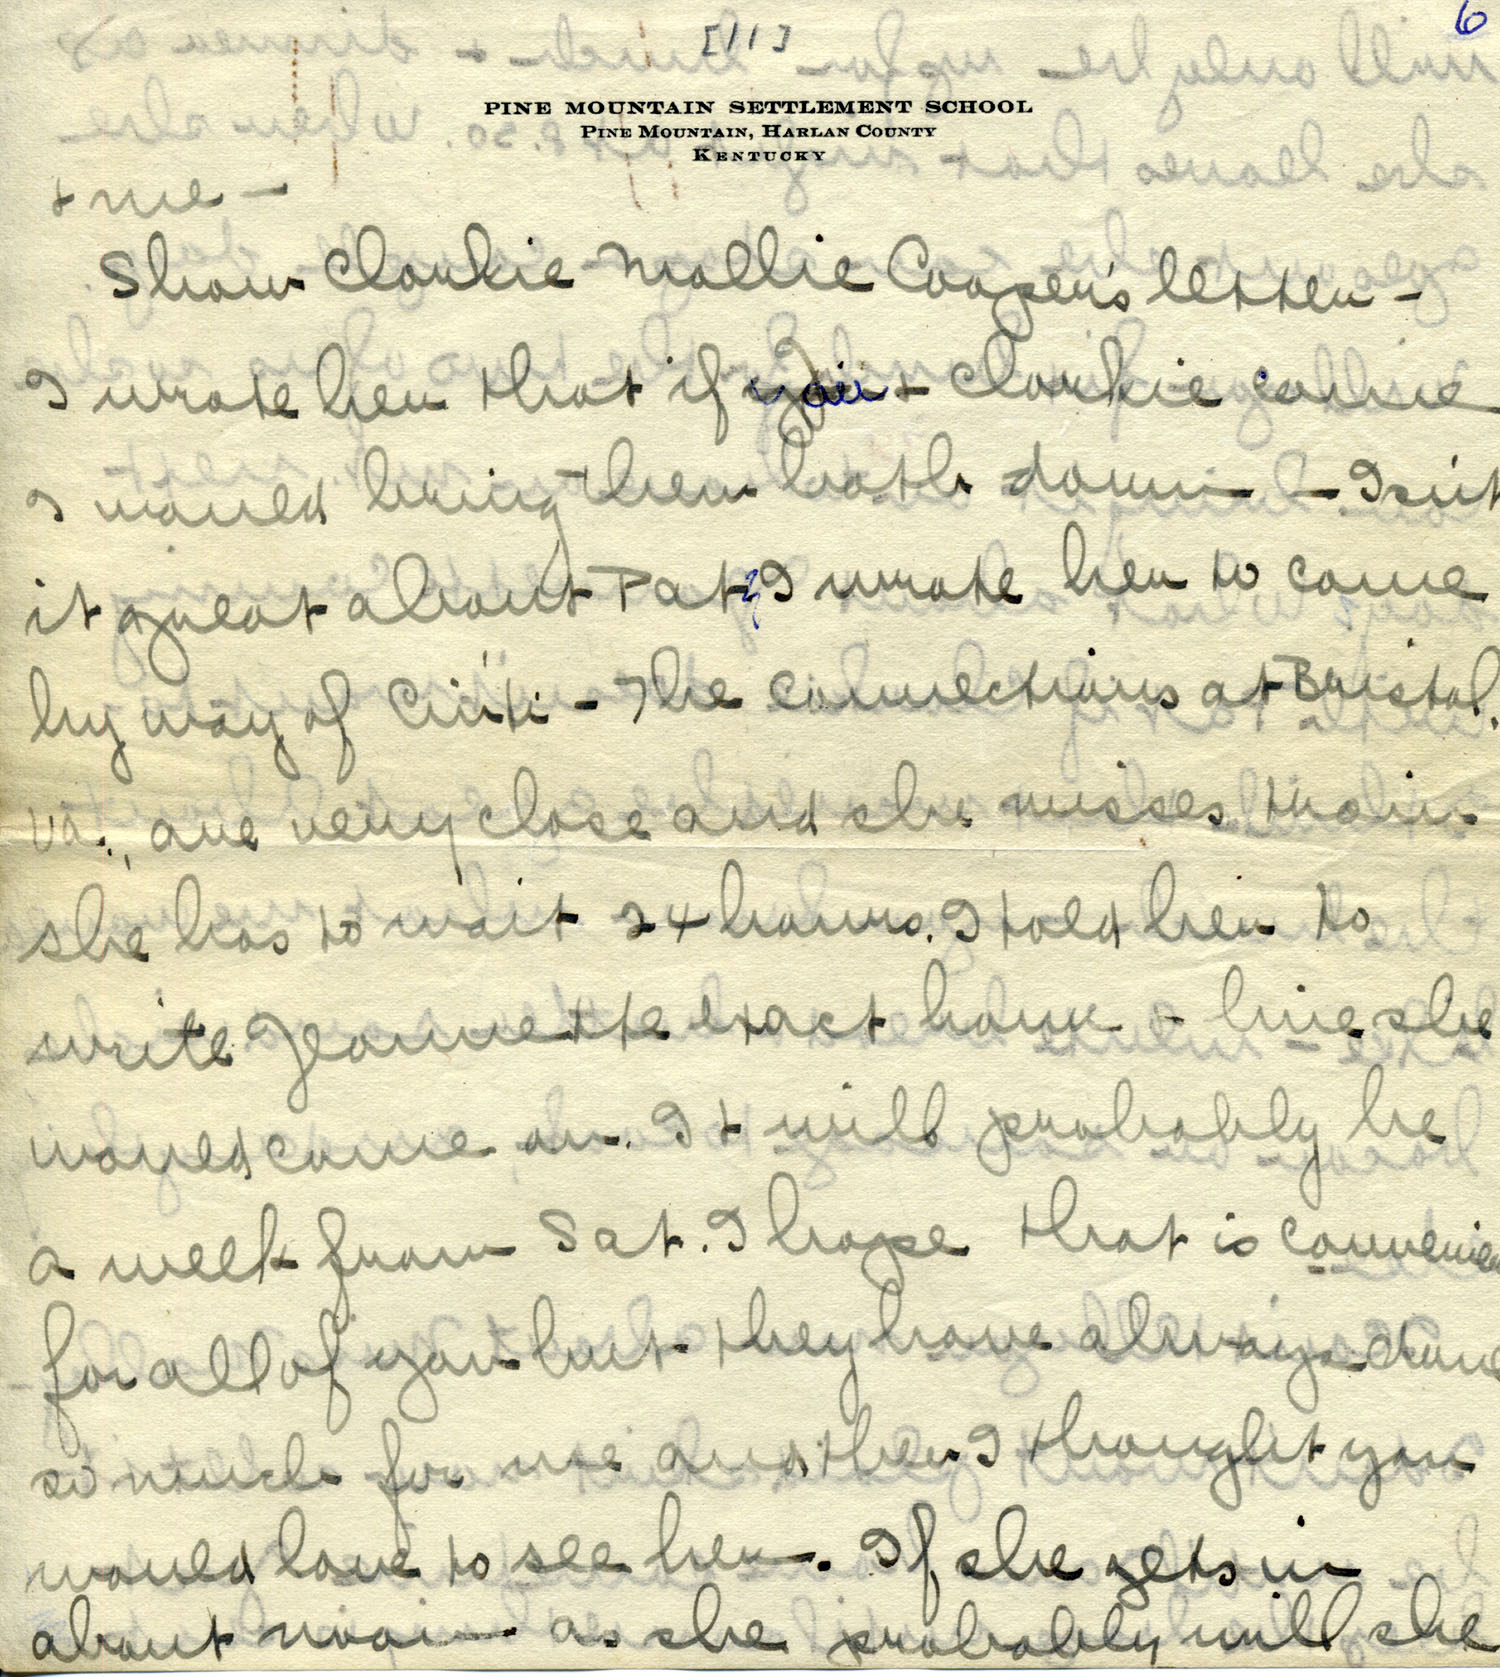 [11]
6
PINE MOUNTAIN SETTLEMENT SCHOOL
PINE MOUNTAIN, HARLAN COUNTY
KENTUCKY
+ me —
Show Clarkie Mollie Cooper's letter —
I wrote her that if you + Clarkie came
I would bring her both down — Isn't
it great about Pat? I wrote her to come
by way of Cinti — The connections at Bristol,
Va., are very close and she misses train
she has to wait 24 hours. I told her to
write Jeannette exact hour + line she
would come on. It will probably be
a week from Sat. I hope that is convenien
for all of you but they have always done
so much for me and then I thought you
would love to see her. If she gets in
about noon — as she probably will she